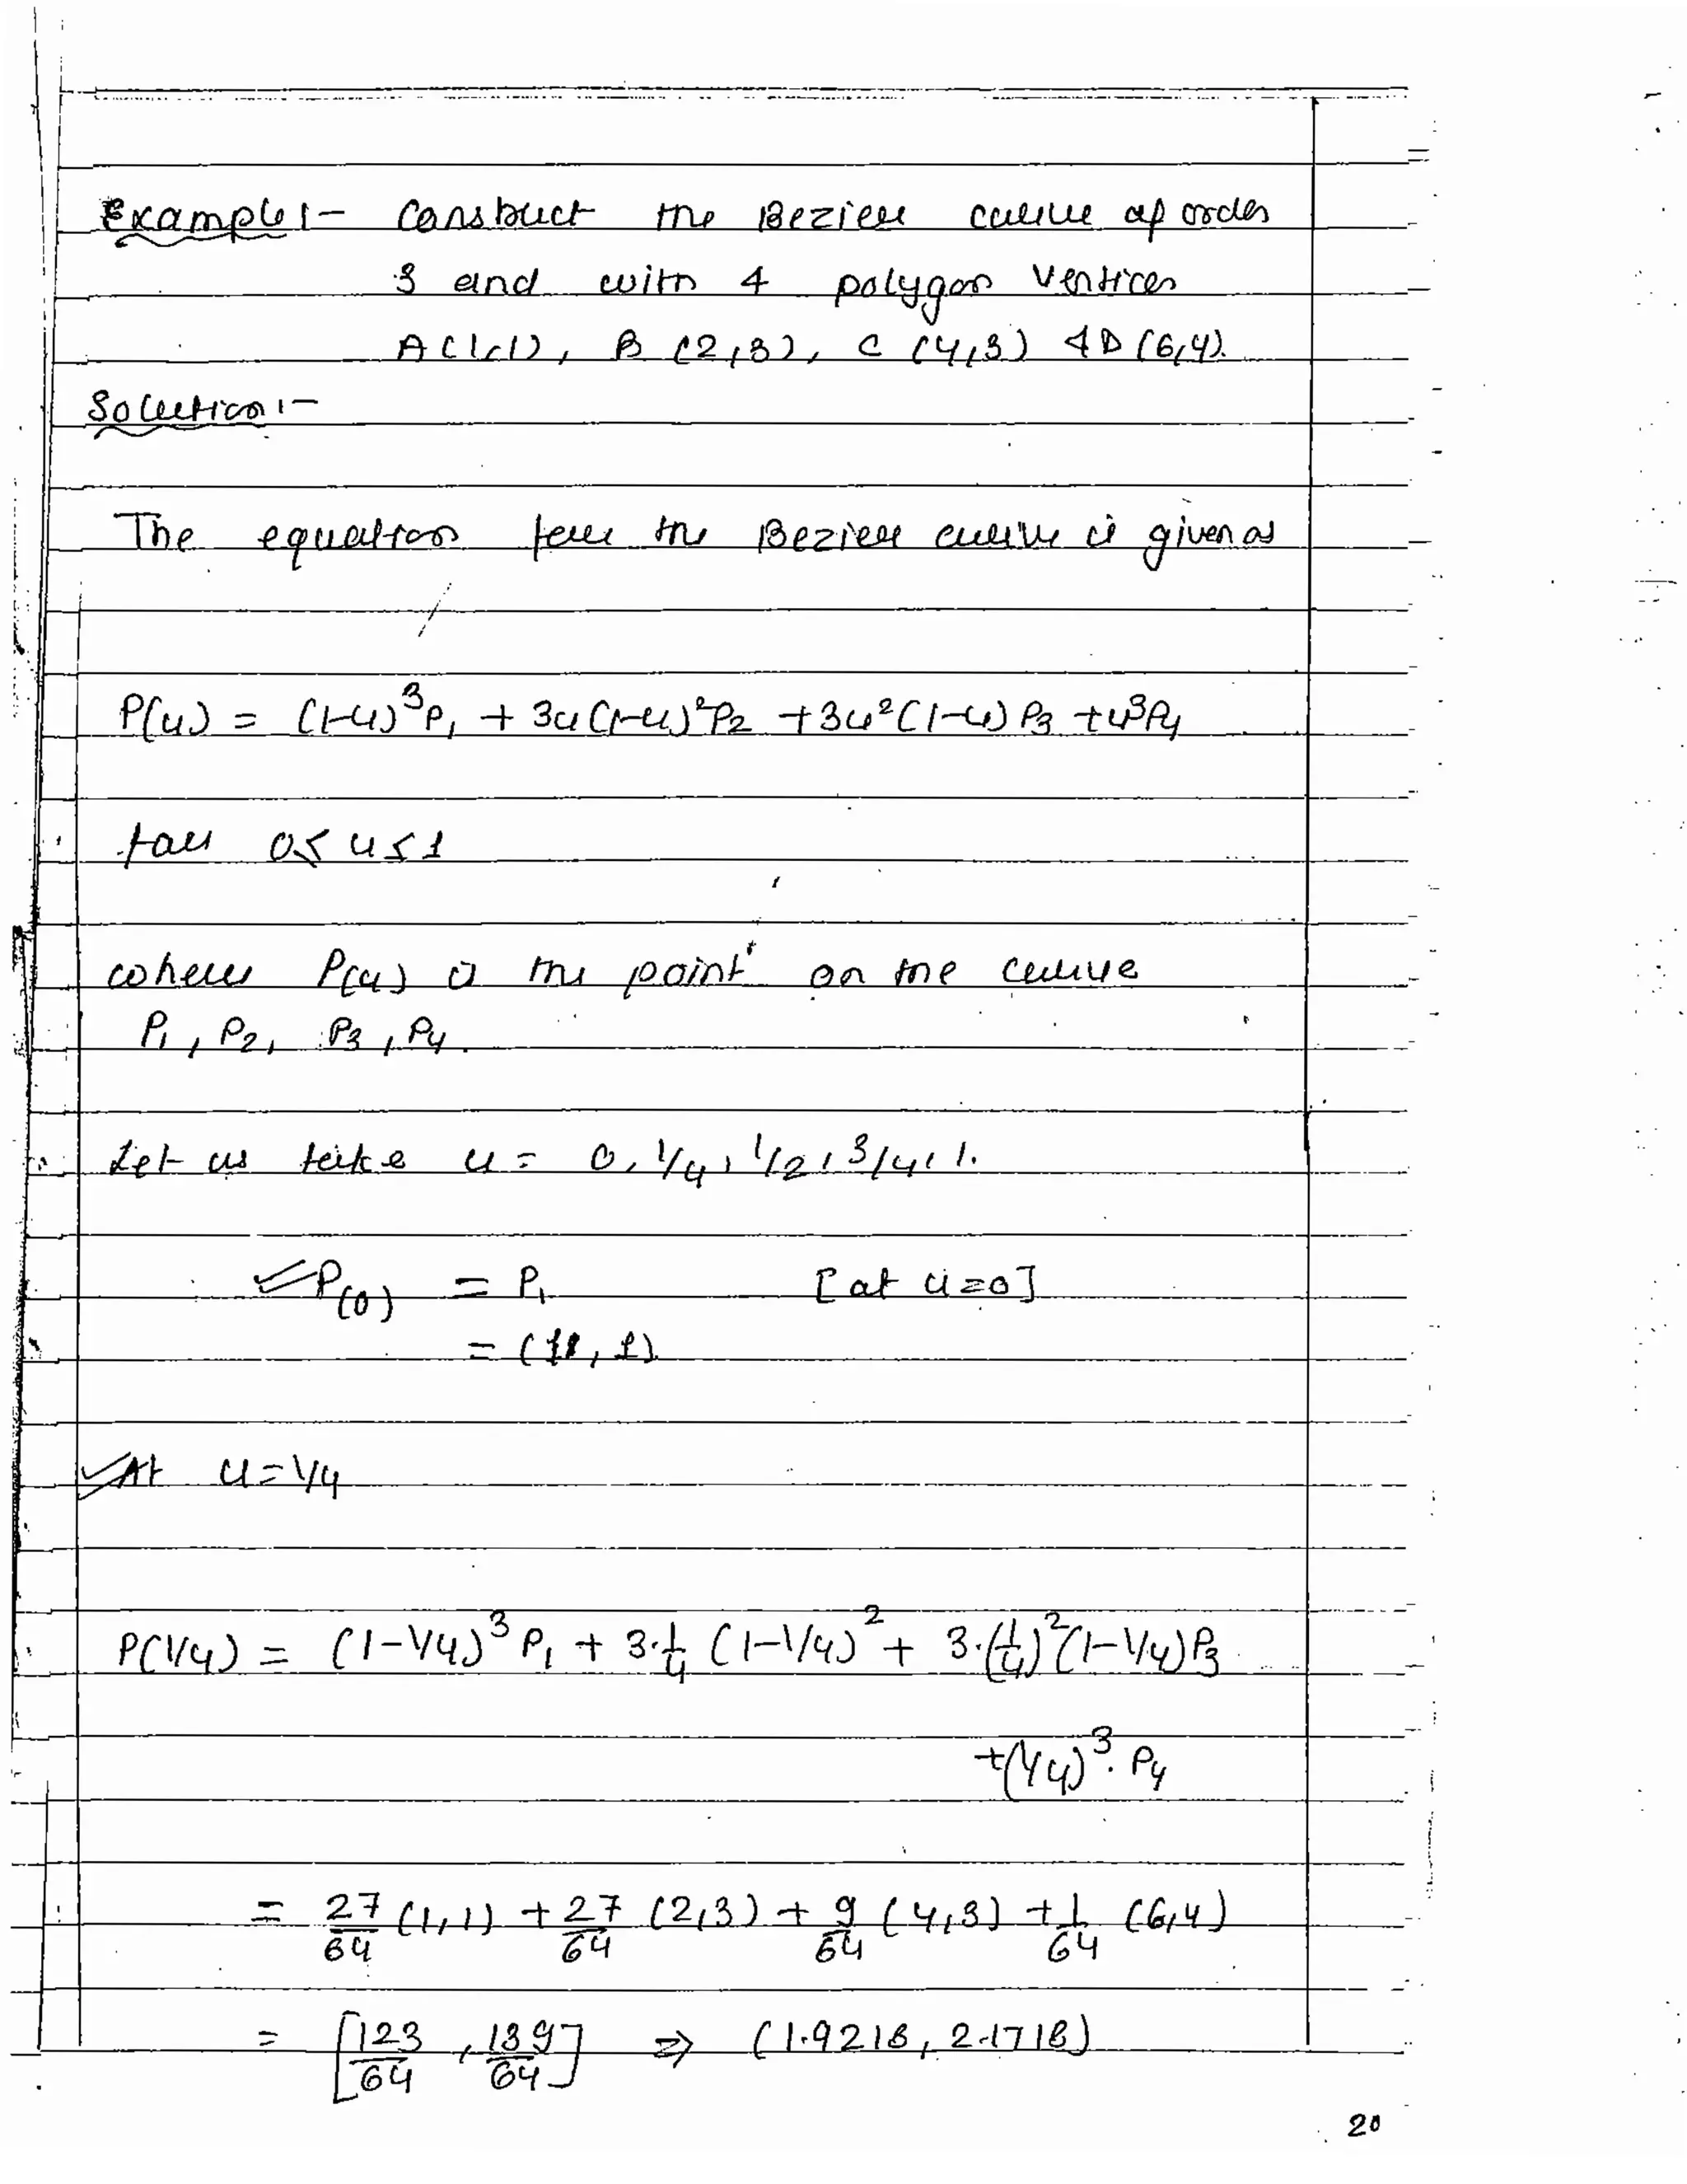 Example :- Construct the Bezier curve of order
3 and with 4 polygon vertices
A(1,1), B (2,3), C (4,3) & D (6,4).
Solution :-
The equation for the Bezier curve is given as
P(u) = (1-u)³P₁ + 3u(1-u)²P₂ + 3u²(1-u) P₃ + u³P₄
for 0 ≤ u ≤ 1
where P(u) is the point on the curve
P₁, P₂, P₃, P₄.
Let us take u = 0, 1/4, 1/2, 3/4, 1.
P(0) = P₁ [at u=0]
= (1, 1)
At u = 1/4
P(1/4) = (1-1/4)³ P₁ + 3·1/4 (1-1/4)² + 3·(1/4)²(1-1/4)P₃
+(1/4)³. P₄
= 27/64 (1,1) + 27/64 (2,3) + 9/64 (4,3) + 1/64 (6,4)
= [123/64, 139/64] ⇒ (1.9218, 2.1718)
20